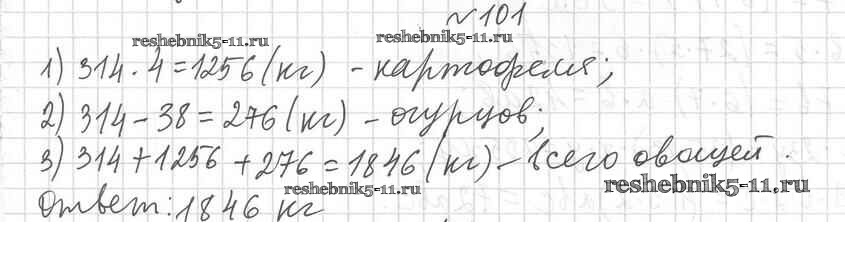 №101
reshebnik5-11.ru reshebnik5-11.ru
1) 314 · 4 = 1256 (кг) - картофеля;
2) 314 - 38 = 276 (кг) - огурцов;
3) 314 + 1256 + 276 = 1846 (кг) - всего овощей.
reshebnik5-11.ru reshebnik5-11.ru
Ответ: 1846 кг